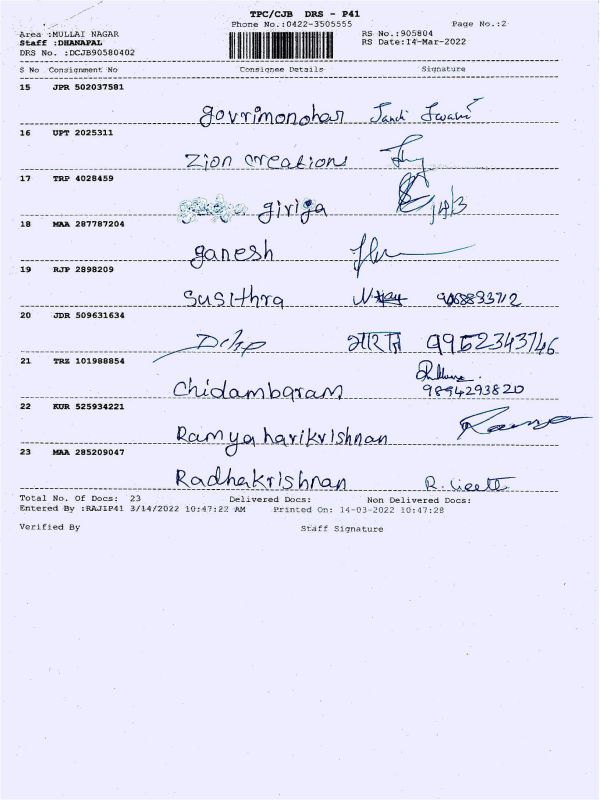 TPC/CJB DRS - P41
Phone No.:0422-3505555 Page No.:2
Area :MULLAI NAGAR RS No.:905804
Staff :DHANAPAL RS Date:14-Mar-2022
DRS No. :DCJB90580402
S No Consignment No Consignee Details Signature
15 JPR 502037581
govrimonohar
16 UPT 2025311
Zion creations
17 TRP 4028459
giriga 14/3
18 MAA 287787204
ganesh
19 RJP 2898209
Susithra
20 JDR 509631634
भारत 9952343746
21 TRZ 101988854
Chidambaram 9894293820
22 KUR 525934221
Ramya harikrishnan
23 MAA 285209047
Radhakrishnan
Total No. Of Docs: 23 Delivered Docs: Non Delivered Docs:
Entered By :RAJIP41 3/14/2022 10:47:22 AM Printed On: 14-03-2022 10:47:28
Verified By Staff Signature